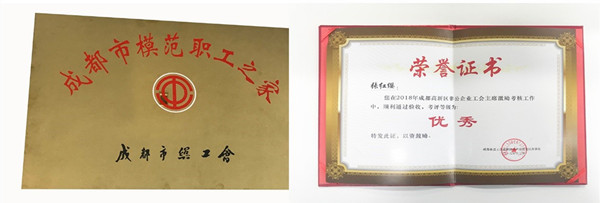 成都市模范职工之家
成都市总工會
荣誉证书
张红缨：
您在2018年成都高新区非公企业工会主席激励考核工作
中，顺利通过验收，考评等级为
优 秀
特发此证，以资鼓励。